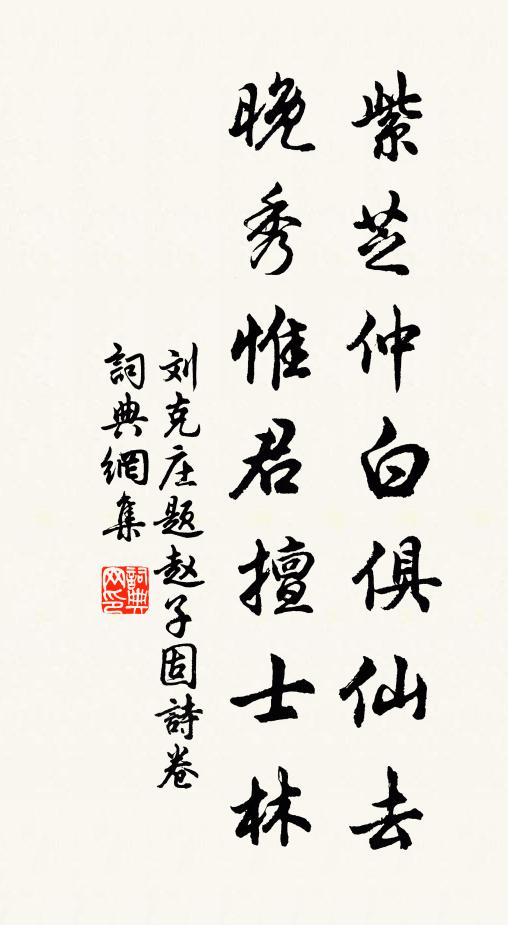 紫芝仲白俱仙去
晚秀惟君擅士林
刘克庄题赵子固詩卷
詞典網集
詞典网印